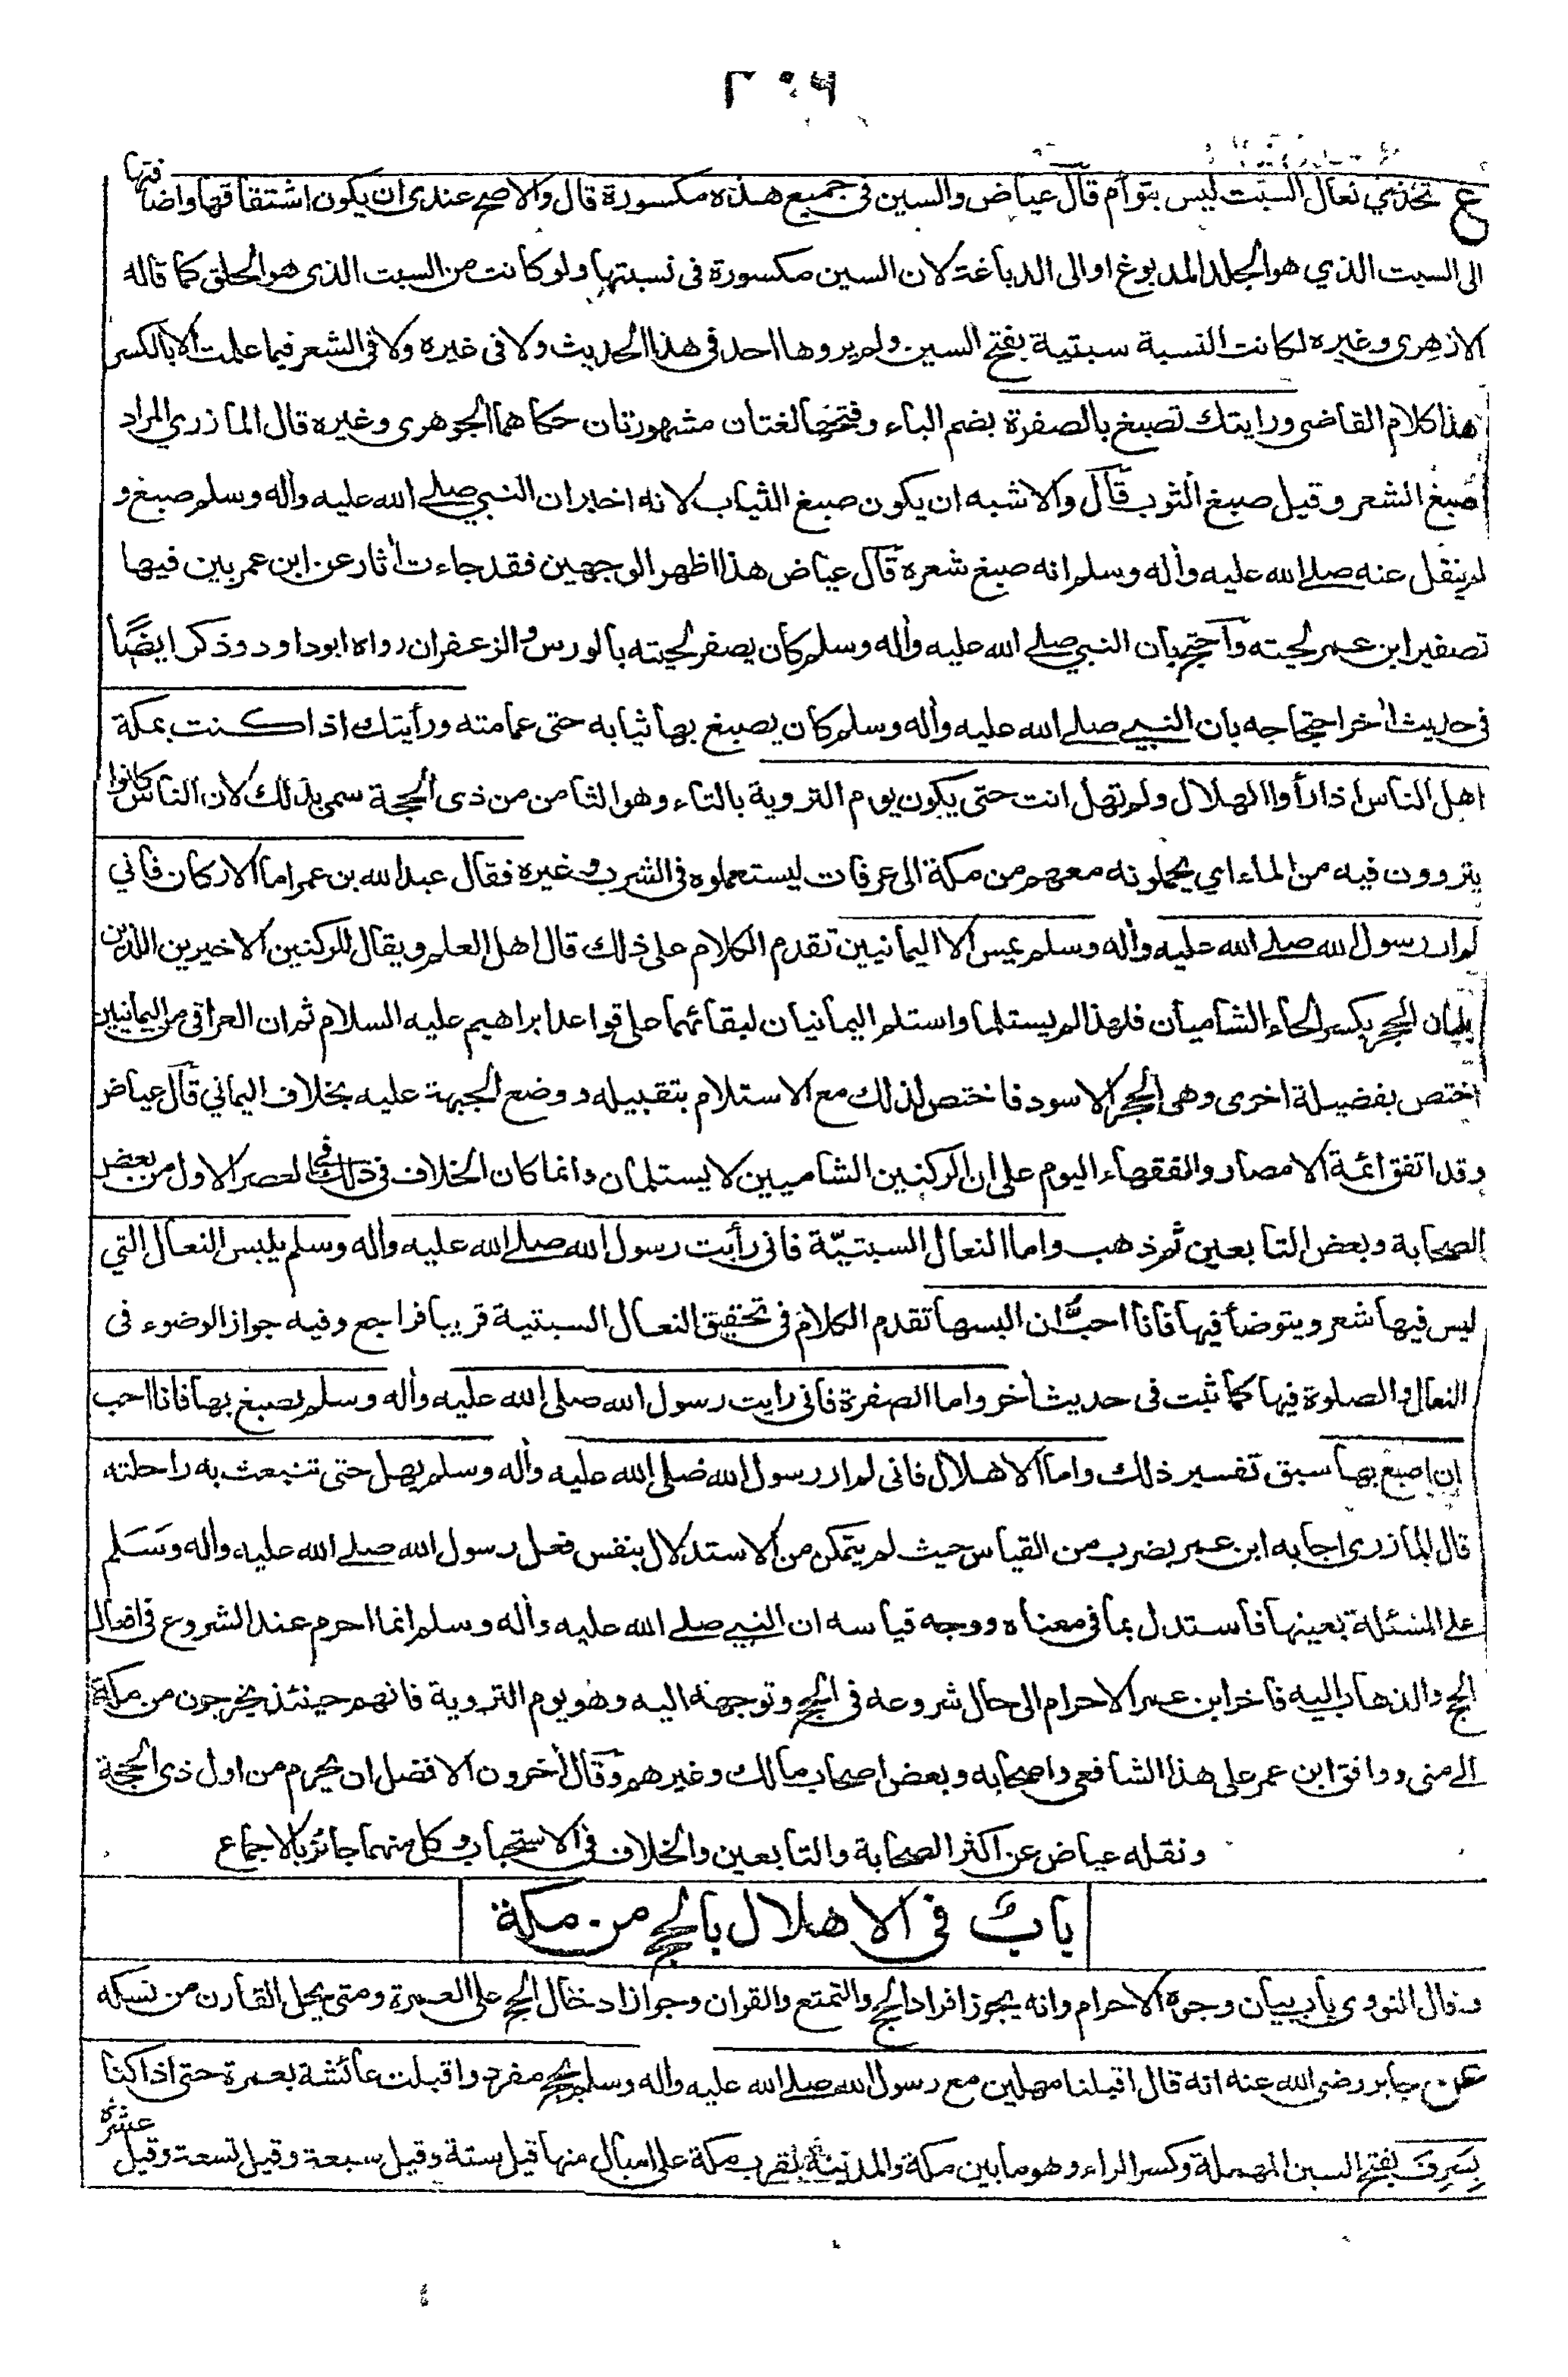 ٢٠٦
ع تحذي نعال السبت ليس بتوأم قال عياض والسين في جميع هذه مكسورة قال والاصح عندي ان يكون اشتقاقها واضافتها
الى السبت الذي هو الجلد المدبوغ او الى الدباغة لان السين مكسورة في نسبتها ولو كانت من السبت الذي هو الحلق كما قاله
الازهري وغيره لكانت النسبة سبتية بفتح السين ولم يروها احد في هذا الحديث ولا في غيره ولا في الشعر فيما علمت الا بالكسر
هذا كلام القاضي ورايتك تصبغ بالصفرة بضم الباء وفتحها لغتان مشهورتان حكاهما الجوهري وغيره قال المازري المراد
صبغ الشعر وقيل صبغ الثوب قال والاشبه ان يكون صبغ الثياب لانه اخبر ان النبي صلے الله عليه وأله وسلم صبغ و
لم ينقل عنه صلے الله عليه وأله وسلم انه صبغ شعره قال عياض هذا اظهر الوجهين فقد جاءت أثار عن ابن عمر بين فيها
تصفير ابن عمر لحيته وأحتج بأن النبي صلے الله عليه وأله وسلم كان يصفر لحيته بالورس والزعفران رواه ابو داود وذكر ايضًا
في حديث أخر احتجاجه بان النبي صلے الله عليه وأله وسلم كان يصبغ بها ثيابه حتى عمامته ورأيتك اذا كنت بمكة
اهل الناس اذا رأوا الهلال ولم تهل انت حتى يكون يوم التروية بالتاء وهو الثامن من ذي الحجة سمي بذلك لان الناس كانوا
يتروون فيه من الماء اي يحملونه معهم من مكة الى عرفات ليستعملوه في الشرب وغيره فقال عبد الله بن عمر اما الاركان فاني
لم ار رسول الله صلے الله عليه وأله وسلم يمس الا اليمانيين تقدم الكلام على ذلك قال اهل العلم ويقال للركنين الاخيرين اللذين
يليان الحجر بكسر الحاء الشاميان فلهذا لم يستلما واستلم اليمانيان لبقائهما على قواعد ابراهيم عليه السلام ثم ان العراقي من اليمانيين
اختص بفضيلة اخرى وهي الحجر الاسود فاختص لذلك مع الاستلام بتقبيله ووضع الجبهة عليه بخلاف اليماني قال عياض
وقد اتفق ائمة الامصار والفقهاء اليوم على ان الركنين الشاميين لا يستلمان وانما كان الخلاف في ذلك في العصر الاول من بعض
الصحابة وبعض التابعين ثم ذهب واما النعال السبتيّة فاني رأيت رسول الله صلے الله عليه وأله وسلم يلبس النعال التي
ليس فيها شعر ويتوضأ فيها فانا احبُّ ان البسها تقدم الكلام في تحقيق النعال السبتية قريبا فراجع وفيه جواز الوضوء في
النعال والصلوة فيها كما ثبت في حديث أخر واما الصفرة فاني رايت رسول الله صلى الله عليه وأله وسلم يصبغ بها فانا احب
ان اصبغ بها سبق تفسير ذلك واما الاهلال فاني لم ار رسول الله صلى الله عليه وأله وسلم يهل حتى تنبعث به راحلته
قال المازري اجابه ابن عمر بضرب من القياس حيث لم يتمكن من الاستدلال بنفس فعل رسول الله صلے الله عليه وأله وسَلم
على المسئلة بعينها فأستدل بما في معناه ووجه قياسه ان النبي صلے الله عليه وأله وسلم انما احرم عند الشروع في افعال
الحج والذهاب اليه فاخر ابن عمر الاحرام الى حال شروعه في الحج وتوجهه اليه وهو يوم التروية فانهم حينئذ يخرجون من مكة
الے منى ووافق ابن عمر على هذا الشافعي واصحابه وبعض اصحاب مالك وغيرهم وقال أخرون الافضل ان يحرم من اول ذي الحجة
ونقله عياض عن اكثر الصحابة والتابعين والخلاف في الاستحباب وكل منهما جائز بالاجماع
باب في الاهلال بالحج من مكة
وقال النووي باب بيان وجوه الاحرام وانه يجوز افراد الحج والتمتع والقران وجواز ادخال الحج على العمرة ومتى يحل القارن من نسكه
عن جابر رضي الله عنه انه قال اقبلنا مهلين مع رسول الله صلے الله عليه واله وسلم بحج مفرد واقبلت عائشة بعمرة حتى اذا كنا
بِسَرِفَ بفتح السين المهملة وكسر الراء وهو ما بين مكة والمدينة بقرب مكة على اميال منها قيل ستة وقيل سبعة وقيل تسعة وقيل عشرة